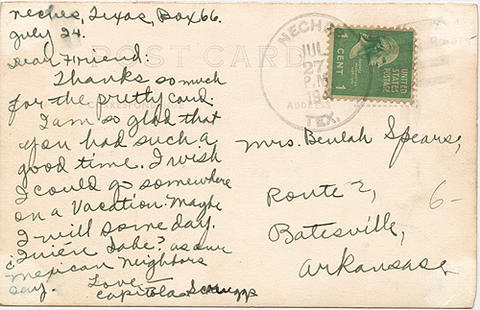 Neches, Texas, Box 66.
July 24.
POST CARD
Dear Friend:
Thanks so much
for the pretty card.
I am so glad that
you had such a
good time. I wish
I could go somewhere
on a Vacation. Maybe
I will some day.
¿Quién Sabe? as our
Mexican neighbors
say.
Love
Capitola
CORRESPONDENCE
ADDRESS
NECHES
JUL
27
P.M.
TEX.
1 CENT 1
UNITED
STATES
POSTAGE
Mrs. Beulah Spears,
Route 2,
Batesville,
Arkansas
6-